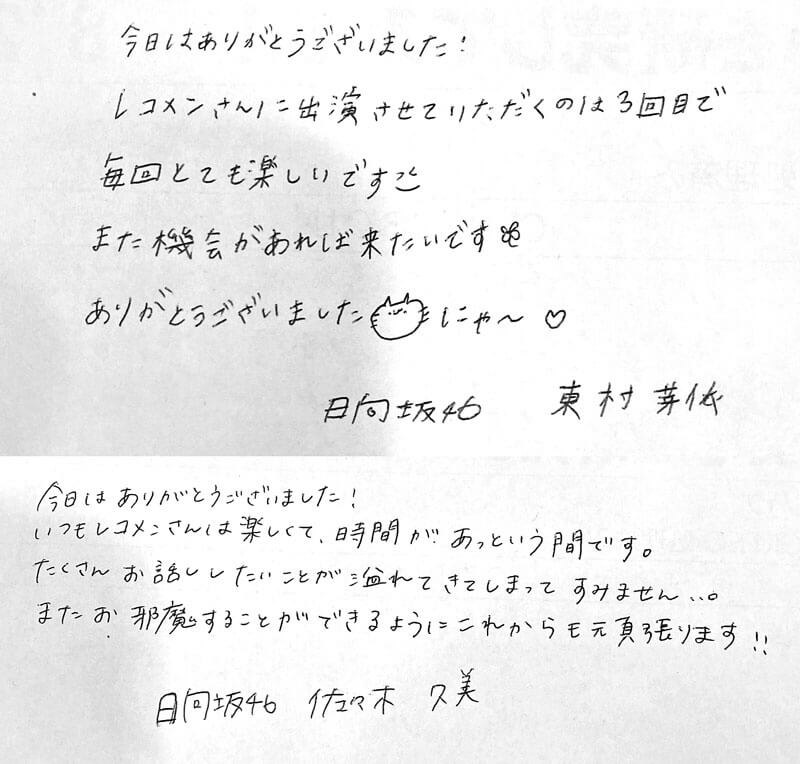 今日はありがとうございました!
レコメンさんに出演させていただくのは3回目で
毎回とても楽しいです
また機会があれば来たいです
ありがとうございました にゃ〜♡
日向坂46 東村芽依
今日はありがとうございました!
いつもレコメンさんは楽しくて、時間があっという間です。
たくさんお話ししたいことが溢れてきてしまってすみません…。
またお邪魔することができるようにこれからも頑張ります!!
日向坂46 佐々木久美